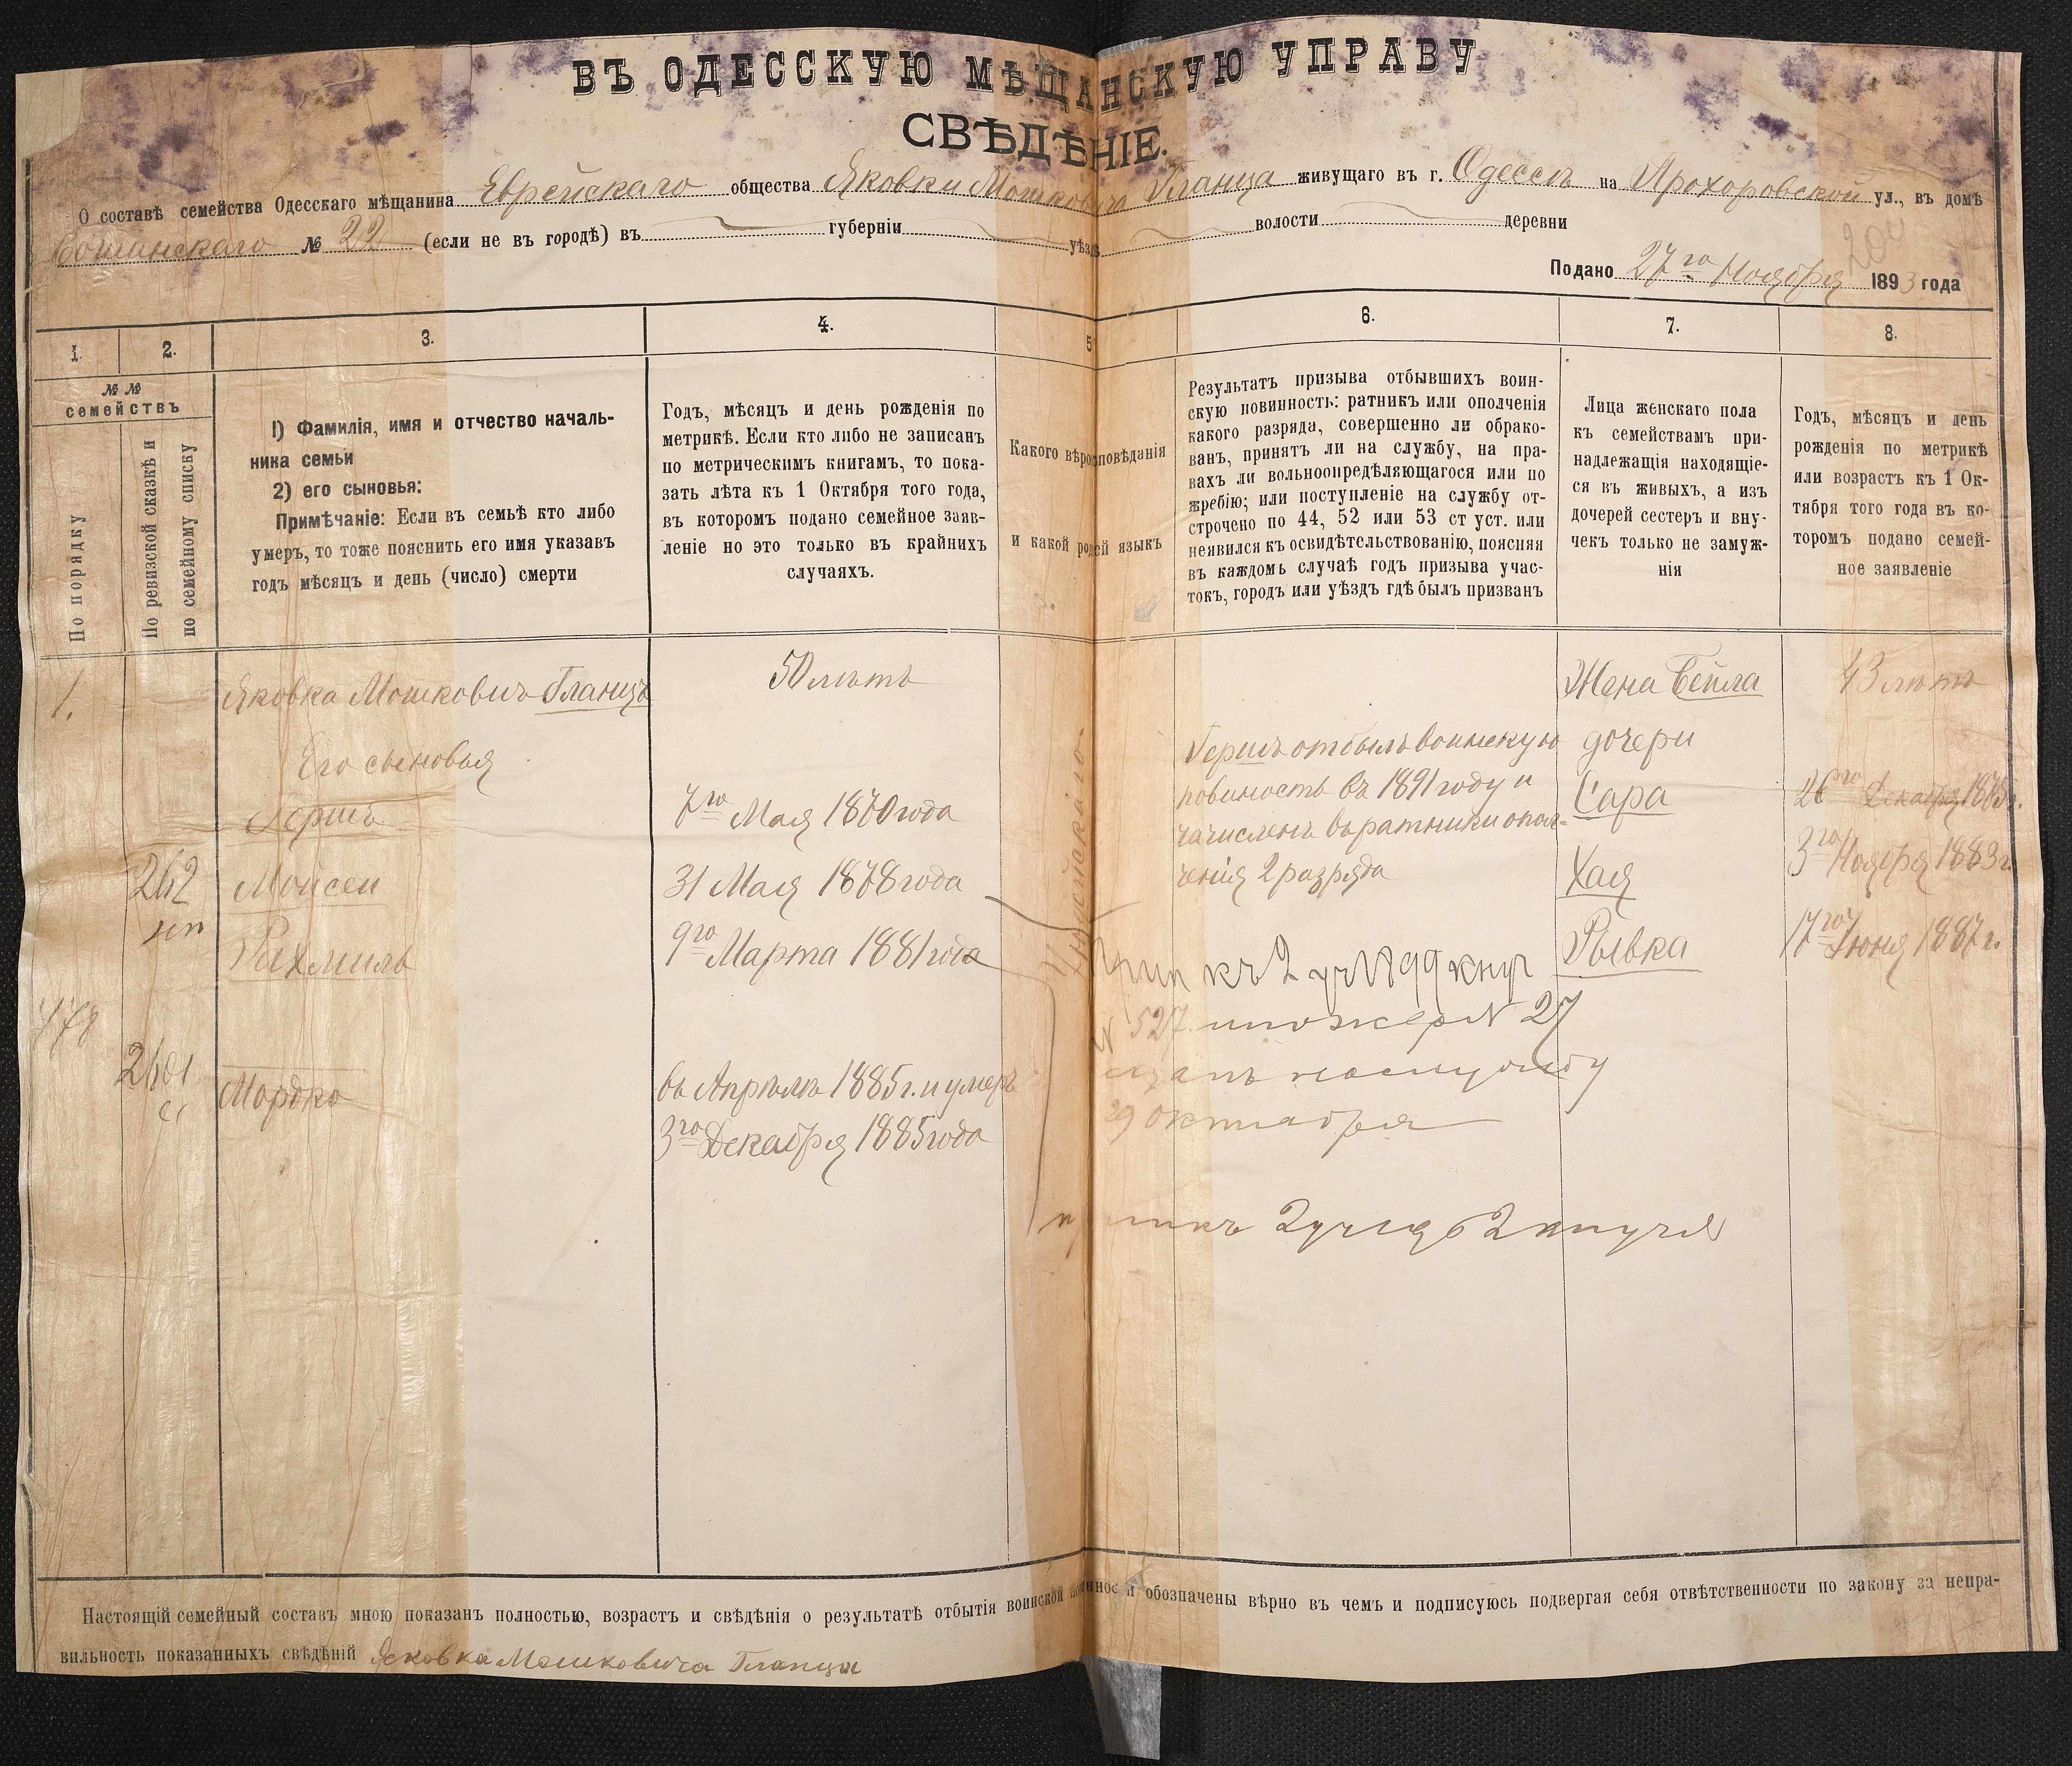 ВЪ ОДЕССКУЮ МѢЩАНСКУЮ УПРАВУ
СВѢДѢНІЕ.
О составѣ семейства Одесскаго мѣщанина Еврейскаго общества Яковки Мошковича Гланца живущаго въ г. Одессѣ на Прохоровской ул., въ домѣ
№ 22 (если не въ городѣ) въ губерніи уѣзда волости деревни
200
Подано 27го Ноября 1893 года
1. 2. 3. 4. 5 6. 7. 8.
№ №
семействъ
По порядку
По ревизской сказкѣ и
по семейному списку
1) Фамилія, имя и отчество началь-
ника семьи
2) его сыновья:
Примѣчаніе: Если въ семьѣ кто либо
умеръ, то тоже пояснить его имя указавъ
годъ мѣсяцъ и день (число) смерти
Годъ, мѣсяцъ и день рожденія по
метрикѣ. Если кто либо не записанъ
по метрическимъ книгамъ, то пока-
зать лѣта къ 1 Октября того года,
въ которомъ подано семейное заяв-
леніе но это только въ крайнихъ
случаяхъ.
Какого вѣроисповѣданія
и какой родной языкъ
Результатъ призыва отбывшихъ воин-
скую повинность: ратникъ или ополченія
какого разряда, совершенно ли обрако-
ванъ, принятъ ли на службу, на пра-
вахъ ли вольноопредѣляющагося или по
жребію; или поступленіе на службу от-
строчено по 44, 52 или 53 ст уст. или
неявился къ освидѣтельствованію, поясняя
въ каждомъ случаѣ годъ призыва учас-
токъ, городъ или уѣздъ гдѣ былъ призванъ
Лица женскаго пола
къ семействамъ при-
надлежащія находящіе-
ся въ живыхъ, а изъ
дочерей сестеръ и вну-
чекъ только не замуж-
нія
Годъ, мѣсяцъ и день
рожденія по метрикѣ
или возрастъ къ 1 Ок-
тября того года въ ко-
торомъ подано семей-
ное заявленіе
1. Яковка Мошковичъ Гланцъ 50 лѣтъ Жена Бейла 43 лѣтъ
Его сыновья
Гершъ 7го Мая 1870 года
262 Мойсей 31 Мая 1878 года
Рахмиль 9го Марта 1881 года
478
Мордко въ Апрѣлѣ 1885 г. и умеръ
3го Декабря 1885 года
Іудейскаго
Гершъ отбылъ воинскую
повиность въ 1891 году и
зачисленъ въ ратники опол-
ченія 2 разряда
къ 2 уч 1899
№ 527 № 27
29 октября
дочери
Сара 26го Декабря 1875 г.
Хая 3го Ноября 1883 г.
Рывка 17го Іюня 1887 г.
Настоящій семейный составъ мною показанъ полностью, возрастъ и свѣдѣнія о результатѣ отбытія воинской обозначены вѣрно въ чемъ и подписуюсь подвергая себя отвѣтственности по закону за непра-
вильность показанныхъ свѣдѣній Яковка Мошковича Гланца